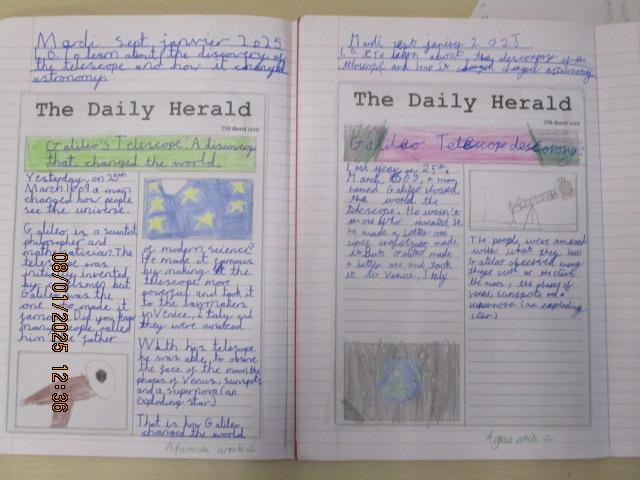 Mardi sept janvier 2025
L.O. To learn about the discovery of
the telescope and how it changed
astronomy
The Daily Herald
Galileo's Telescope: A discovery
that changed the world.
Yesterday, on 25th
March 1609 a man
changed how people
see the universe.
Galileo, is a
philosopher and
mathematician. The
telescope was
initially invented
by
Galileo was the
one to made it
famous. Did you
many people called
him the father
of modern science?
He made it famous
by making the
telescope more
powerful and took it
to the lawmakers
in Venice, Italy and
they were amazed.
With his telescope
he was able, to observe
the face of the moon, the
phases of Venus, sunspots
and a supernova (an
exploding star)
That is how Galileo
changed the world
article
08/01/2025 12:36
Mardi sept janvier 2025
L.O. To learn about the discovery of the
telescope and how it changed astronomy
The Daily Herald
Galileo Telescope discovery
Last year on 25th
March 1609, a man
named Galileo showed
the world the
telescope. He wasn't
invented it,
He made a better one
since made
it but Galileo made
a better one and took
it to Venice, Italy.
The people were amazed
with what they
Galileo observed many
things such as
the moon, the phases of
venus, sunspots and a
supernova (an exploding
star)
A great article